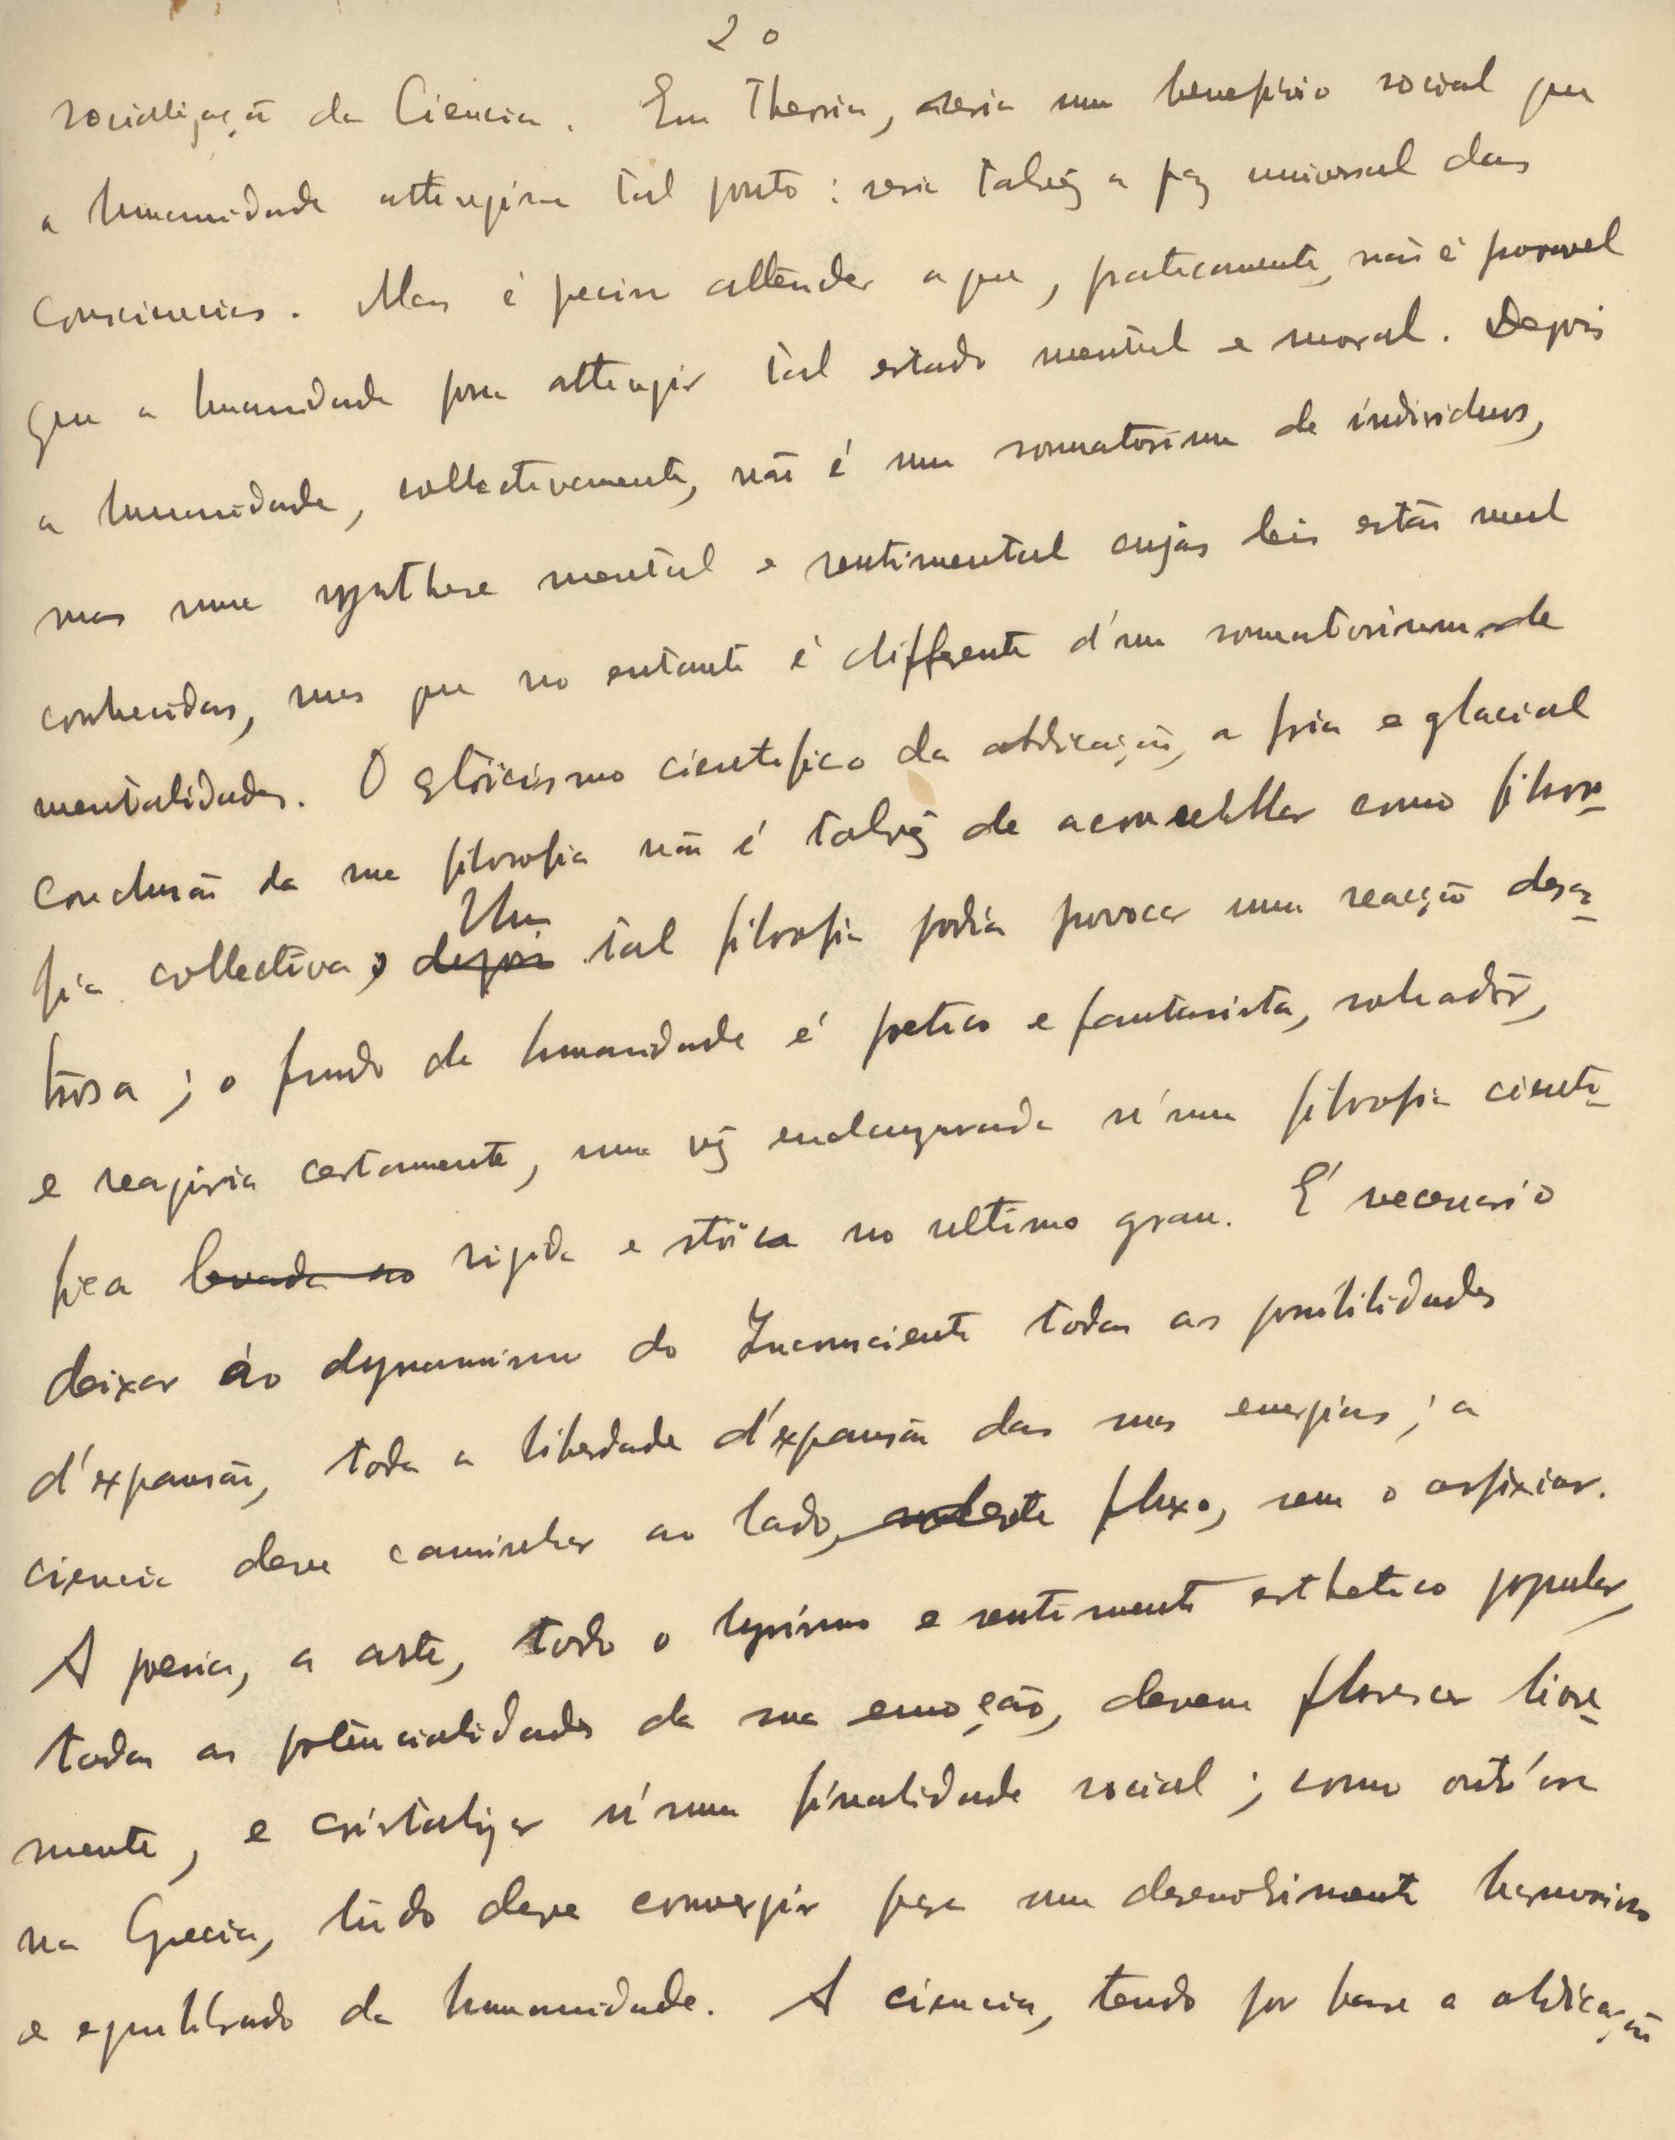 20
socialização da Ciencia. Em Theoria, seria um beneficio social que
a humanidade attingisse tal ponto: seria talvêz a paz universal das
consciencias. Mas é preciso attender a que, praticamente, não é possivel
que a humanidade possa attingir tal estado mental e moral. Depois
a humanidade, collectivamente, não é um somatorium de individuos,
mas uma synthese mental e sentimental cujas leis estão mal
conhecidas, mas que no entanto é differente d'um somatorium de
mentalidades. O stoicismo cientifico da abdicação, a fria e glacial
conclusão da sua filosofia não é talvêz de aconselhar como filoso-
fia collectiva. Uma tal filosofia podia provocar uma reacção desas-
trosa; o fundo da humanidade é poetico e fantasista, sonhadôr,
e reagiria certamente, uma vêz enclausurada n'uma filosofia cienti-
fica levada ao rigida e stoica no ultimo grau. É necessario
deixar áo dynamismo do Inconsciente todas as possibilidades
d'expansão, toda a liberdade d'expansão das suas energias; a
ciencia deve caminhar ao lado, deste fluxo, sem o asfixiar.
A poesia, a arte, todo o lyrismo e sentimento esthetico popular,
todas as potencialidades da sua emoção, devem florescer livre-
mente, e cristalizar n'uma finalidade social; como outr'ora
na Grecia, tudo deve convergir para um desenvolvimento harmonioso
e equilibrado da humanidade. A ciencia, tendo por base a abdicação